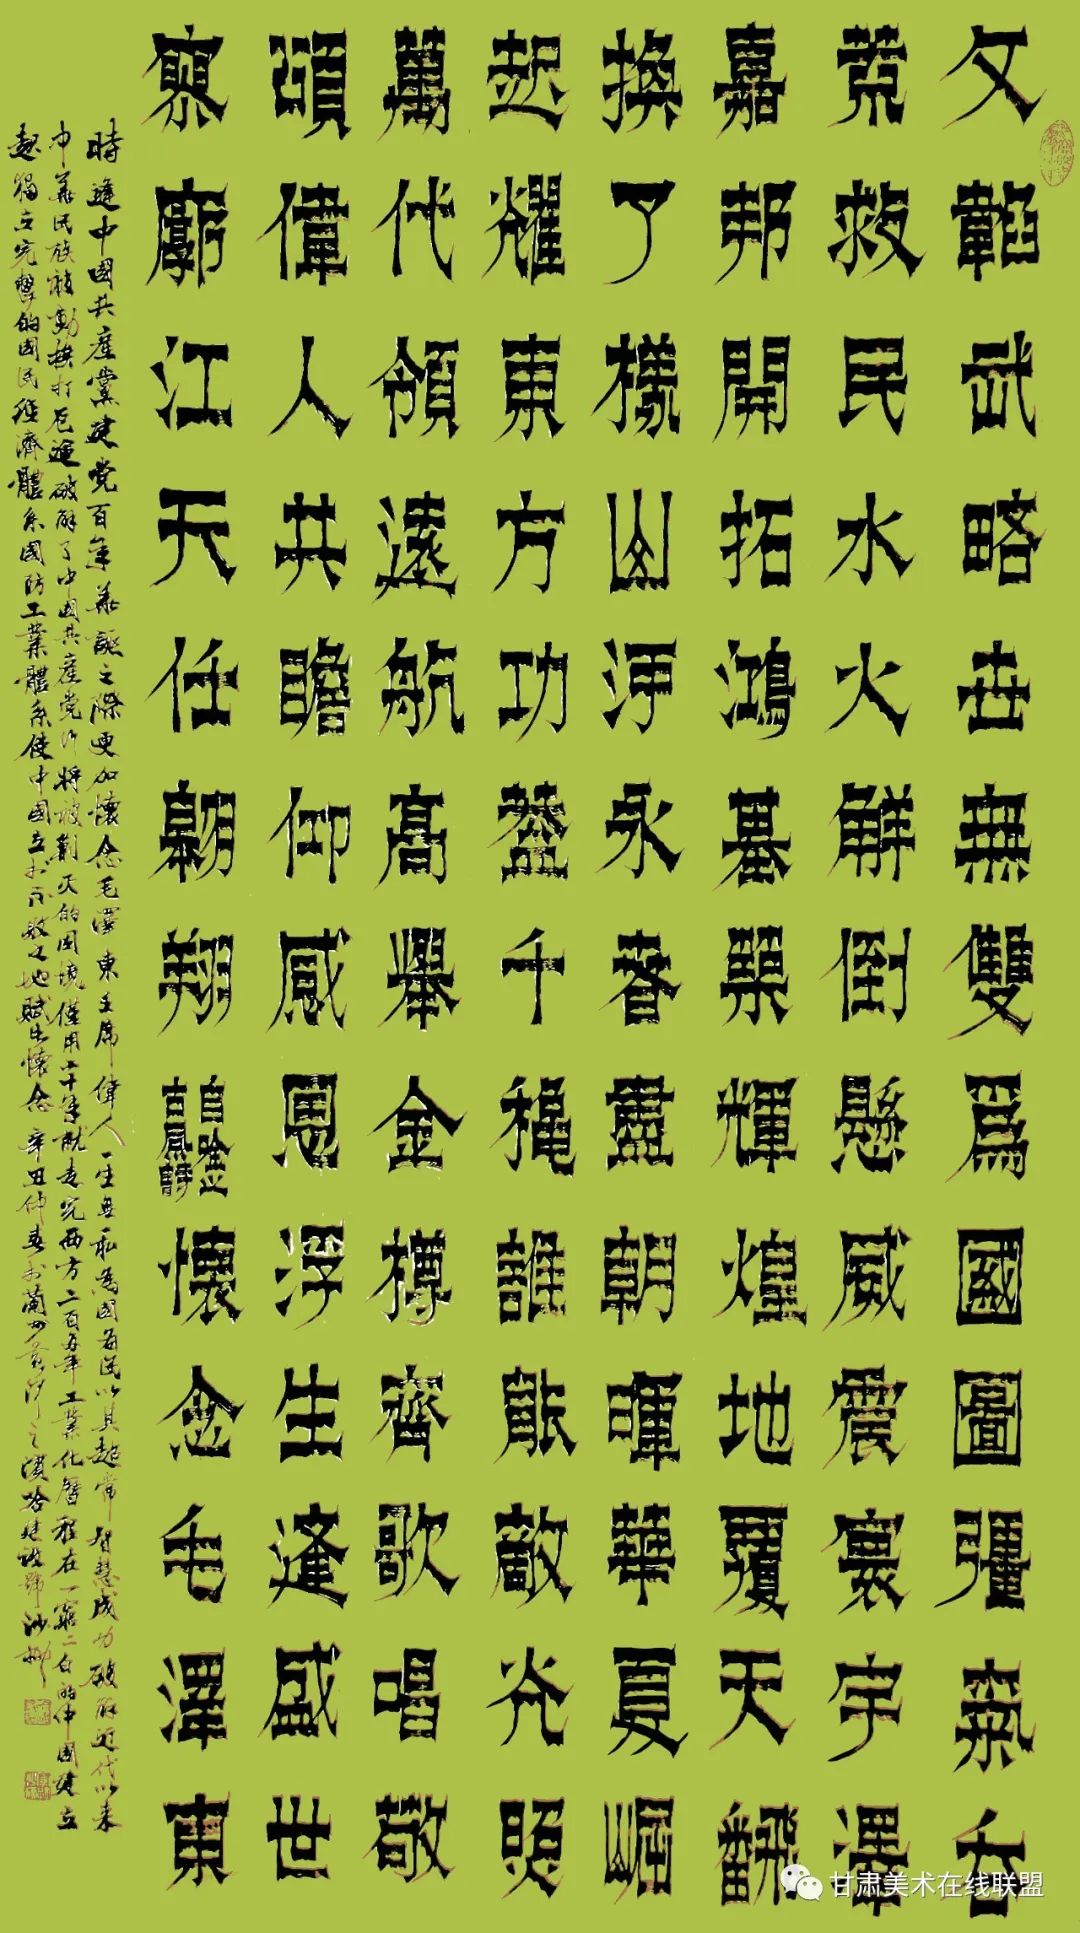 文韜武略世無雙爲國圖彊氣吞
荒救民水火解倒懸威震寰宇澤
嘉邦開拓鴻基業輝煌地覆天翻
換了樣山河永春盡朝暉華夏崛
起耀東方功蓋千穐誰能敵光照
萬代領遠航高舉金樽齊歌唱敬
頌偉人共瞻仰感恩浮生逢盛世
寥廓江天任翱翔
自鑒吉風詩
懷念毛澤東
時逢中國共產黨建党百年華誕之際更加懷念毛澤東主席偉人一生無私為國為民以其超常智慧成功破解近代以來
中華民族被動挨打厄運破解了中國共產党行將被剿灭的困境僅用二十年就走完西方二百五年工業化曆程在一窮二白的中國建立
起獨立完整的國民經濟體系國防工業體系使中國立於不敗之地賦此懷念 辛丑仲春於蘭州黃河之濱
甘肃美术在线联盟